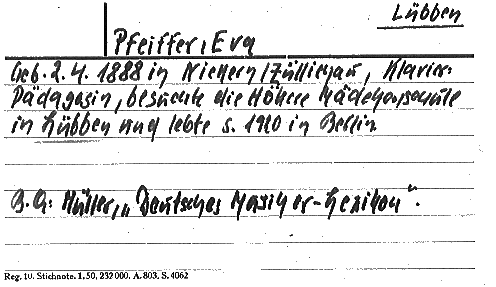 Lübben
Pfeiffer, Eva
Geb. 2. 4. 1888 in Nickern/Züllichau, Klavier-
Pädagogin, besuchte die Höhere Mädchenschule
in Lübben und lebte s. 1910 in Berlin
B. A: Müller, „Deutsches Musiker-Lexikon“.
Reg. 10. Stichnote. 1. 50, 232000. A. 803. S. 4062